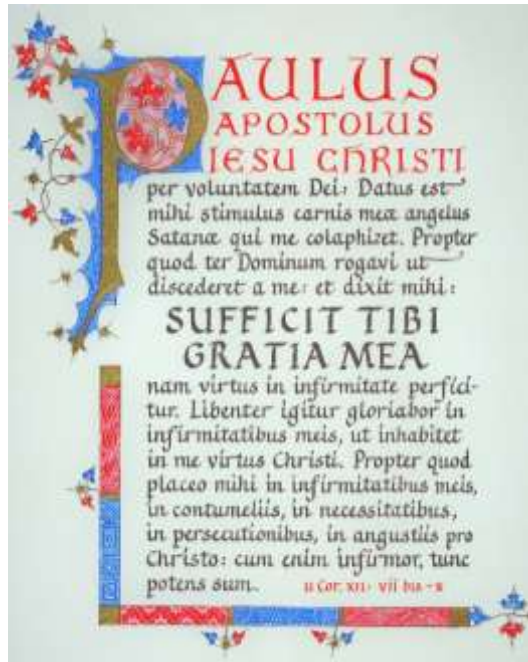 PAULUS
APOSTOLUS
IESU CHRISTI
per voluntatem Dei: Datus est
mihi stimulus carnis meæ angelus
Satanæ qui me colaphizet. Propter
quod ter Dominum rogavi ut
discederet a me: et dixit mihi:
SUFFICIT TIBI
GRATIA MEA
nam virtus in infirmitate perfici-
tur. Libenter igitur gloriabor in
infirmitatibus meis, ut inhabitet
in me virtus Christi. Propter quod
placeo mihi in infirmitatibus meis,
in contumeliis, in necessitatibus,
in persecutionibus, in angustiis pro
Christo: cum enim infirmor, tunc
potens sum. II Cor. XII: VII bis - X